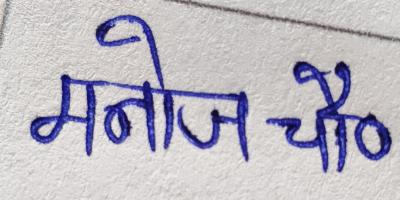 मनोज चौ०